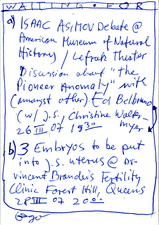 WAITING · FOR
a) ISAAC ASIMOV DEBATE @
American Museum of Natural
History / Lefrak Theater
Discussion about "the
Pioneer Anomaly" with
(amongst other) Ed Belbruno
(w/ J.S., Christine Walker-
26 III 07 19³⁰
b) 3 Embryos to be put
into J.S. uterus @ Dr.
Vincent Brandeis Fertility
Clinic Forest Hill, Queens
28 III 07 2⁰⁰